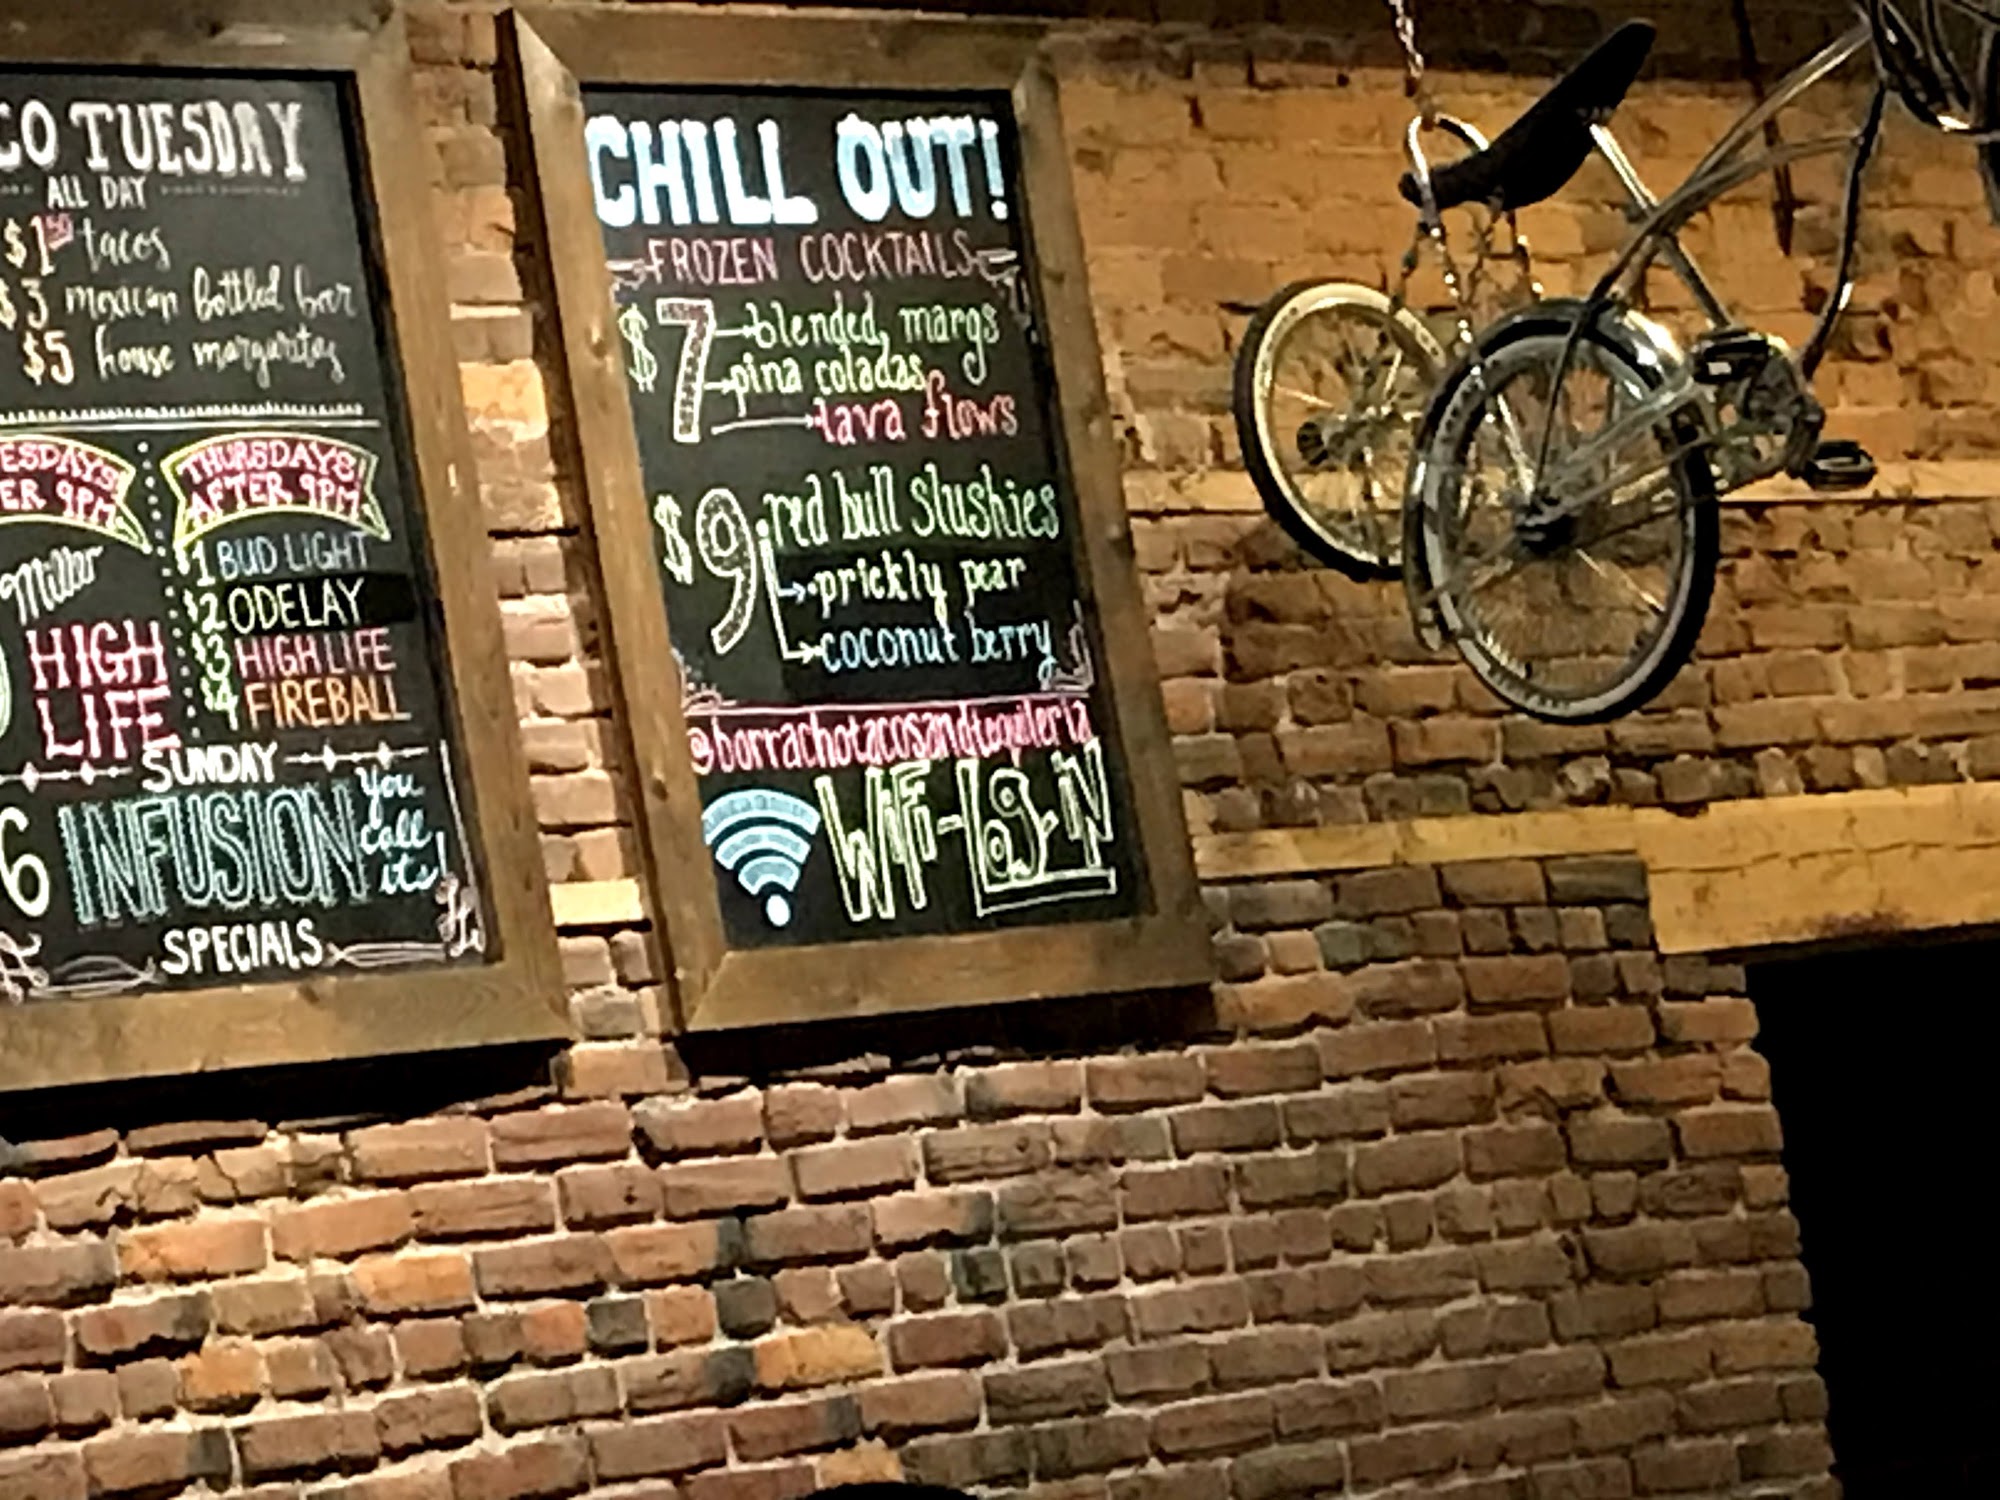 CO TUESDAY
ALL DAY
$1.50 tacos
$3 mexican bottled beer
$5 house margaritas
ESDAYS!
ER 9PM
Miller
HIGH
LIFE
THURSDAYS!
AFTER 9PM
$1 BUD LIGHT
$2 ODELAY
$3 HIGH LIFE
$4 FIREBALL
SUNDAY
6 INFUSION You call its!
SPECIALS
CHILL OUT!
FROZEN COCKTAILS
$7 blended margs
pina coladas
lava flows
$9 red bull slushies
prickly pear
coconut berry
@borrachotacosandtequileria
WiFi-Log-iN